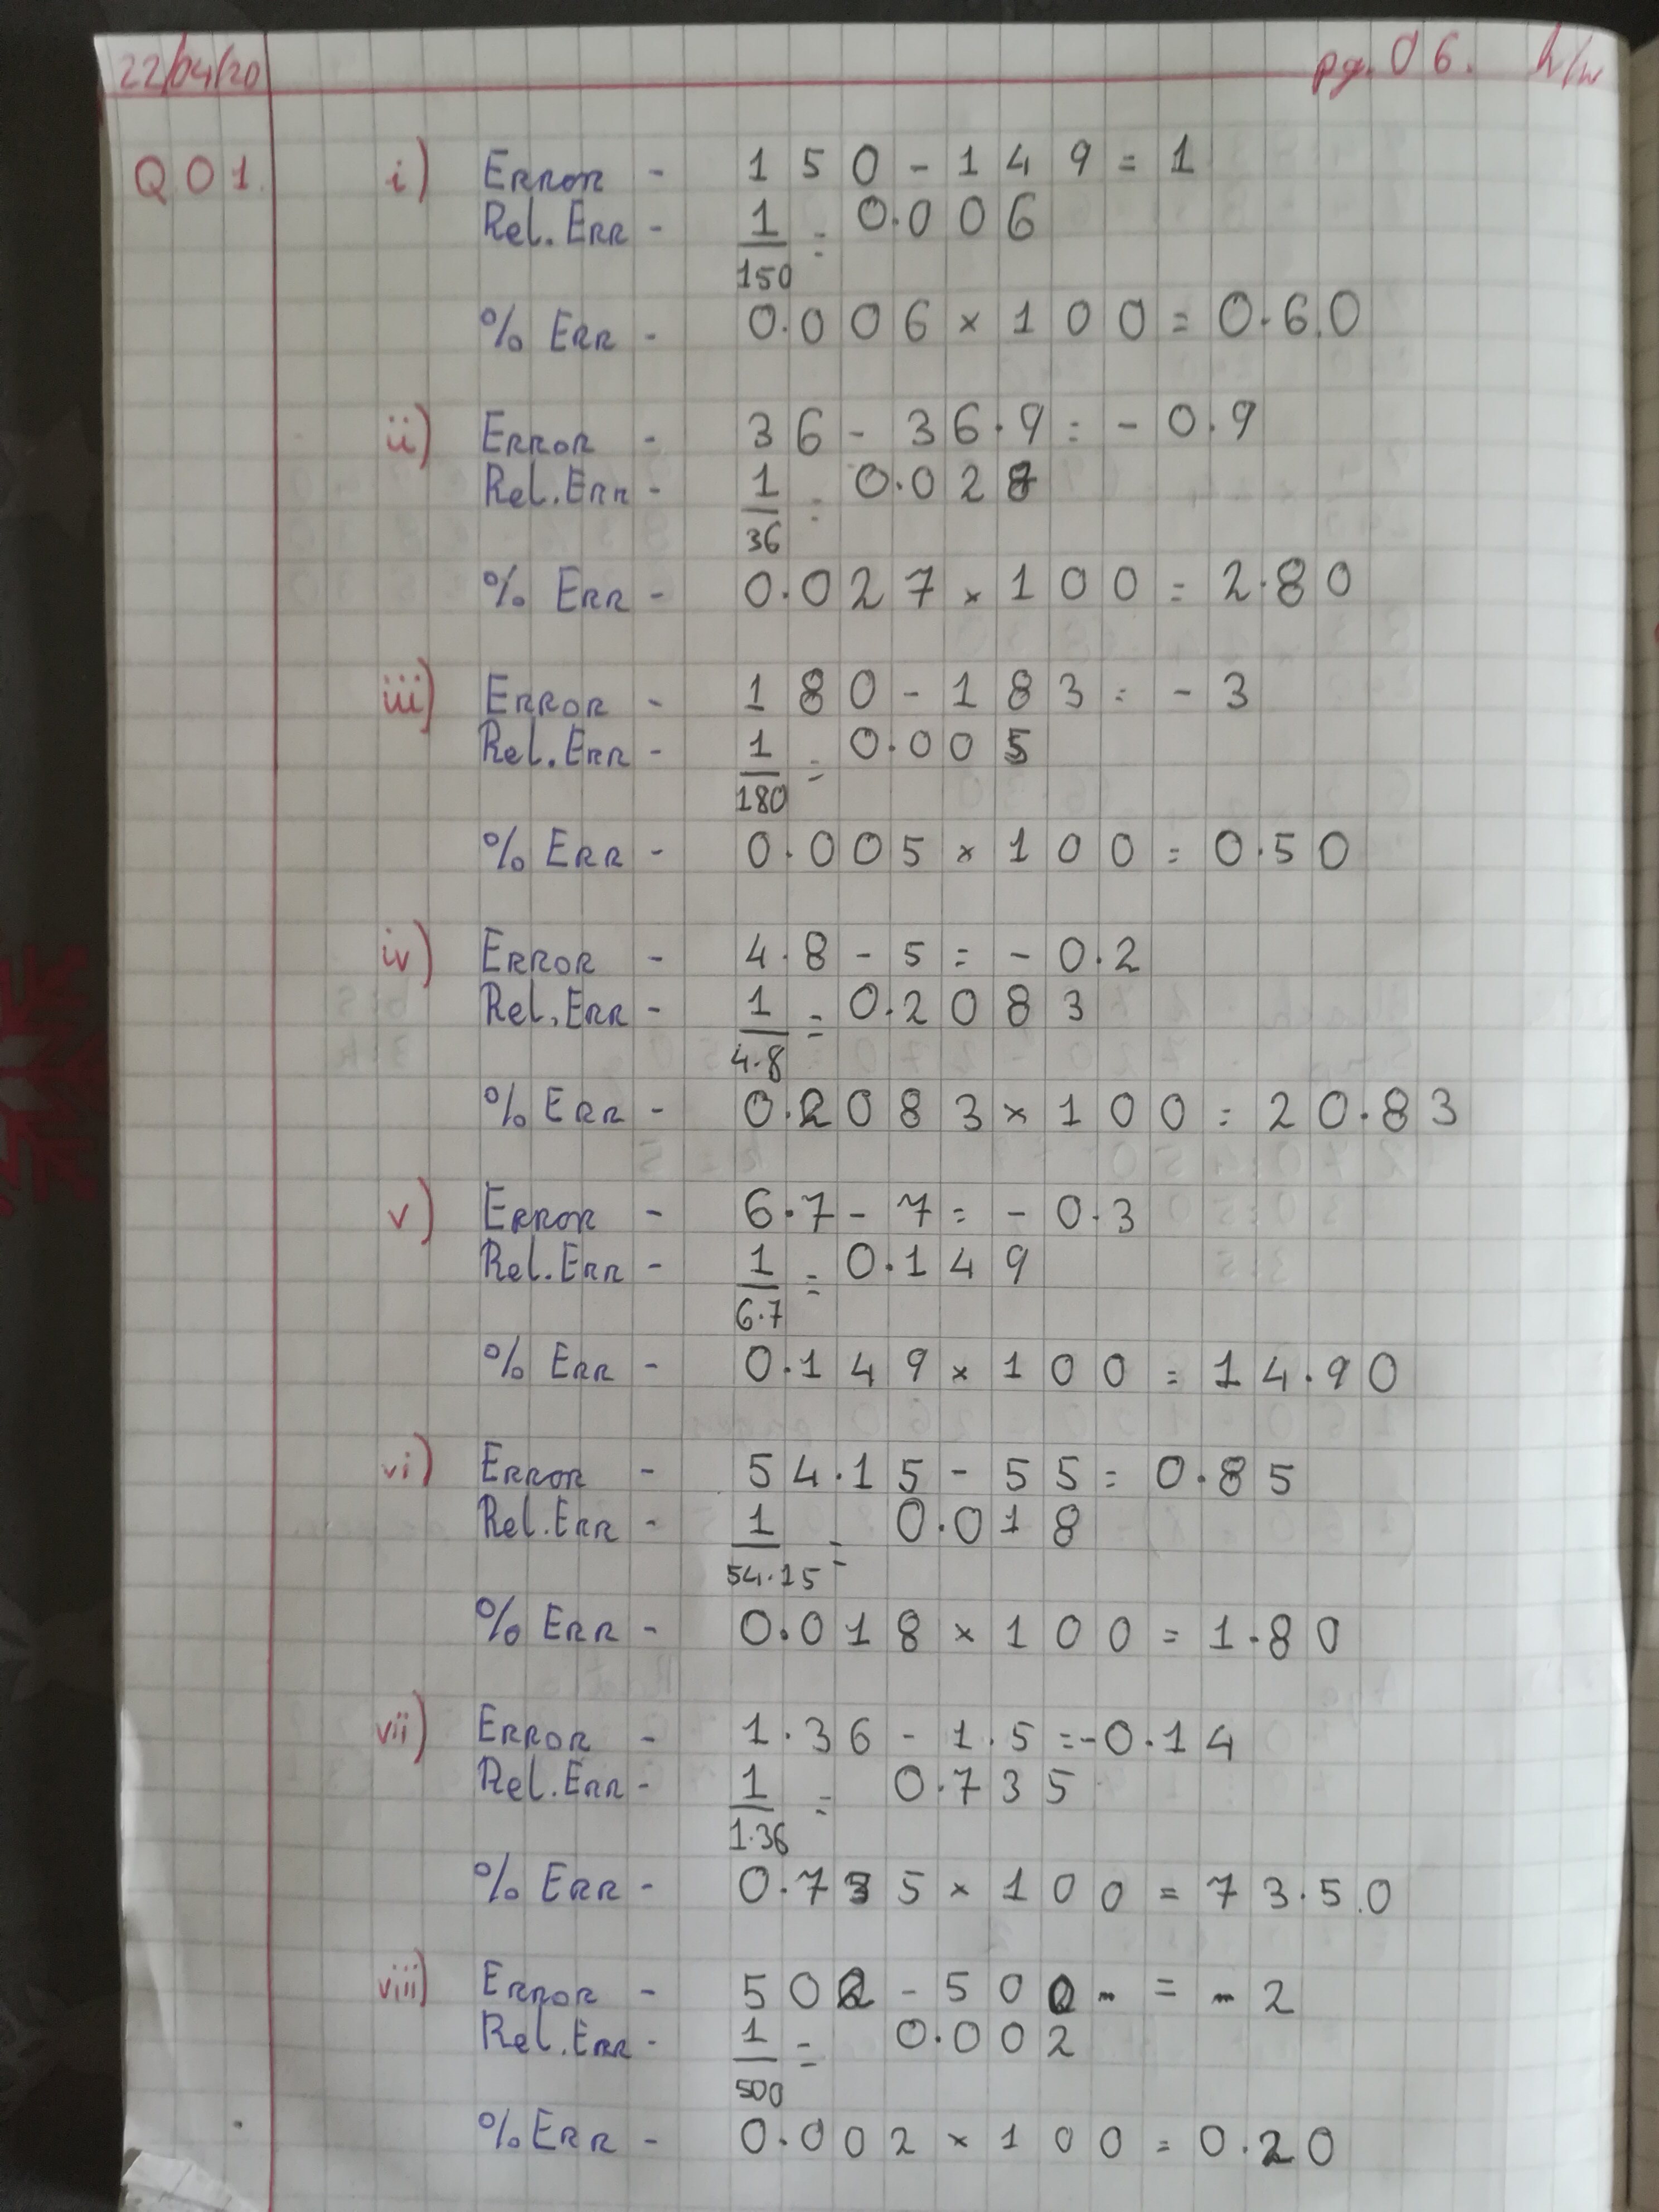 22/04/20 pg. 06. h/w
Q01. i) Error - 150 - 149 = 1
Rel. Err - 1/150 = 0.006
% Err - 0.006 × 100 = 0.60
ii) Error - 36 - 36.9 = - 0.9
Rel. Err - 1/36 = 0.028
% Err - 0.027 × 100 = 2.80
iii) Error - 180 - 183 = - 3
Rel. Err - 1/180 = 0.005
% Err - 0.005 × 100 = 0.50
iv) Error - 4.8 - 5 = - 0.2
Rel. Err - 1/4.8 = 0.2083
% Err - 0.2083 × 100 = 20.83
v) Error - 6.7 - 7 = - 0.3
Rel. Err - 1/6.7 = 0.149
% Err - 0.149 × 100 = 14.90
vi) Error - 54.15 - 55 = 0.85
Rel. Err - 1/54.15 = 0.018
% Err - 0.018 × 100 = 1.80
vii) Error - 1.36 - 1.5 = -0.14
Rel. Err - 1/1.36 = 0.735
% Err - 0.735 × 100 = 73.50
viii) Error - 502 - 500 - = - 2
Rel. Err - 1/500 = 0.002
% Err - 0.002 × 100 = 0.20